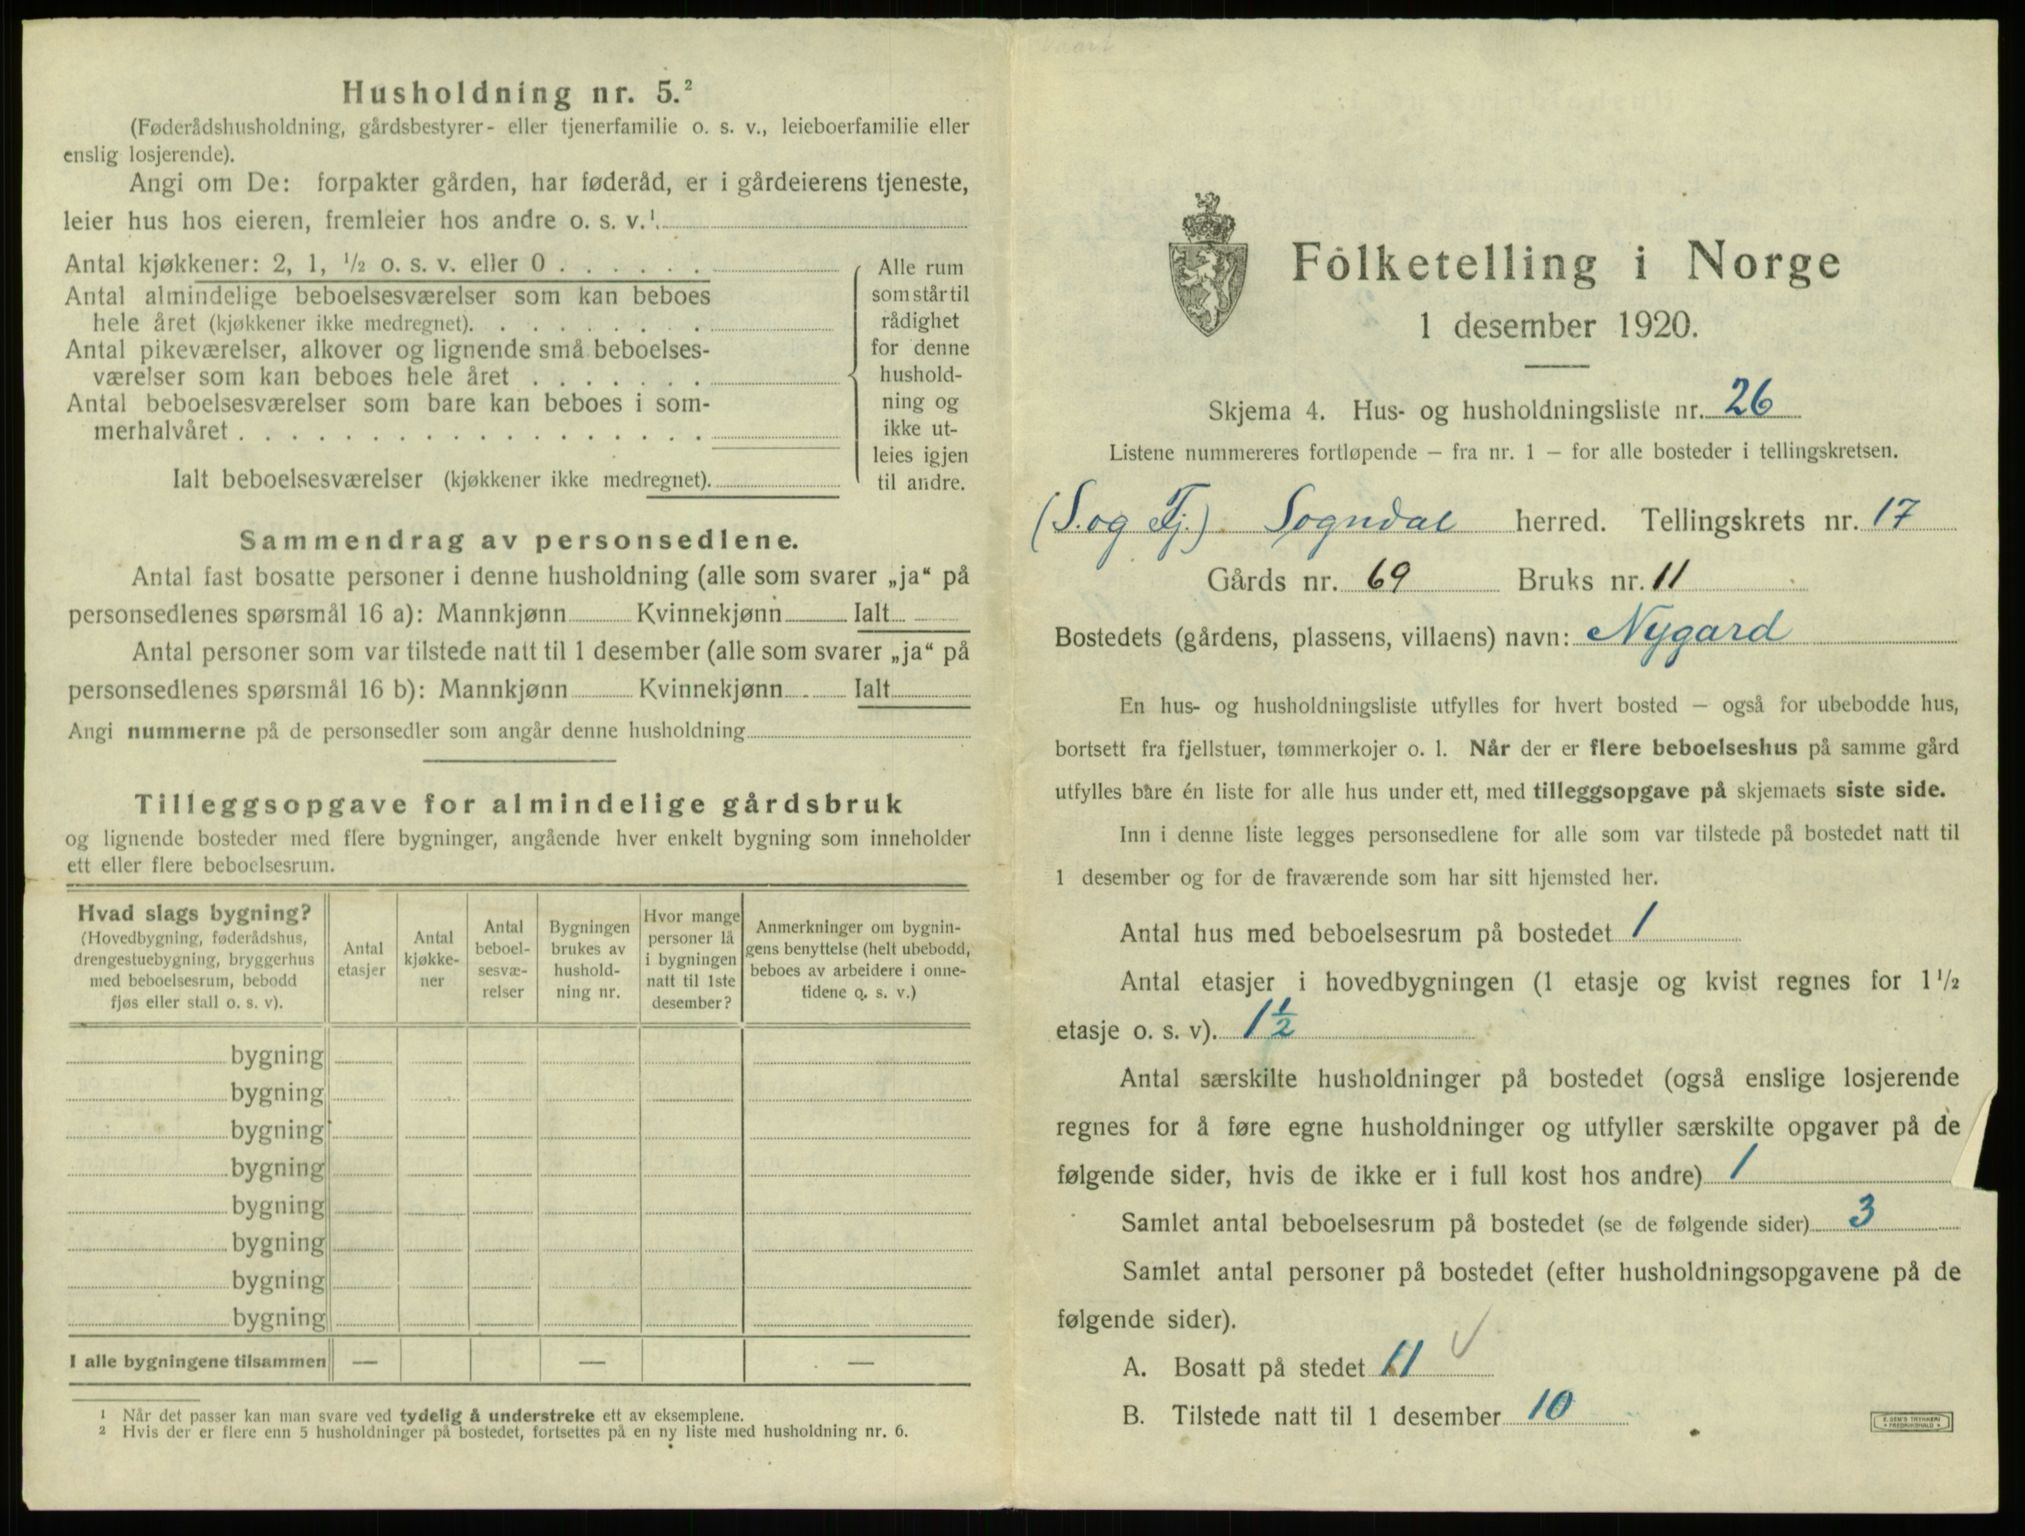 Husholdning nr. 5.²
(Føderådshusholdning, gårdsbestyrer- eller tjenerfamilie o. s. v., leieboerfamilie eller
enslig losjerende).
Angi om De: forpakter gården, har føderåd, er i gårdeierens tjeneste,
leier hus hos eieren, fremleier hos andre o. s. v.¹
Antal kjøkkener: 2, 1, ½ o. s. v. eller 0 . . . . . .
Antal almindelige beboelsesværelser som kan beboes
hele året (kjøkkener ikke medregnet). . . . . . . . .
Antal pikeværelser, alkover og lignende små beboelses-
værelser som kan beboes hele året . . . . . . .
Antal beboelsesværelser som bare kan beboes i som-
merhalvåret . . . . . . . . . . . . . . . . . .
Ialt beboelsesværelser (kjøkkener ikke medregnet).
Alle rum
som står til
rådighet
for denne
hushold-
ning og
ikke ut-
leies igjen
til andre.
Sammendrag av personsedlene.
Antal fast bosatte personer i denne husholdning (alle som svarer „ja“ på
personsedlenes spørsmål 16 a): Mannkjønn Kvinnekjønn Ialt
Antal personer som var tilstede natt til 1 desember (alle som svarer „ja“ på
personsedlenes spørsmål 16 b): Mannkjønn Kvinnekjønn Ialt
Angi nummerne på de personsedler som angår denne husholdning
Tilleggsopgave for almindelige gårdsbruk
og lignende bosteder med flere bygninger, angående hver enkelt bygning som inneholder
ett eller flere beboelsesrum.
Hvad slags bygning?
(Hovedbygning, føderådshus,
drengestuebygning, bryggerhus
med beboelsesrum, bebodd
fjøs eller stall o. s. v).
Antal
etasjer
Antal
kjøkke-
ner
Antal
beboel-
sesvæ-
relser
Bygningen
brukes av
hushold-
ning nr.
Hvor mange
personer lå
i bygningen
natt til 1ste
desember?
Anmerkninger om bygnin-
gens benyttelse (helt ubebodd,
beboes av arbeidere i onne-
tidene o. s. v.)
bygning
bygning
bygning
bygning
bygning
bygning
bygning
bygning
I alle bygningene tilsammen — — —
¹ Når det passer kan man svare ved tydelig å understreke ett av eksemplene.
² Hvis der er flere enn 5 husholdninger på bostedet, fortsettes på en ny liste med husholdning nr. 6.
Folketelling i Norge
1 desember 1920.
Skjema 4. Hus- og husholdningsliste nr. 26
Listene nummereres fortløpende – fra nr. 1 – for alle bosteder i tellingskretsen.
(S. og Fj.) Sogndal herred. Tellingskrets nr. 17
Gårds nr. 69 Bruks nr. 11
Bostedets (gårdens, plassens, villaens) navn: Nygard
En hus- og husholdningsliste utfylles for hvert bosted – også for ubebodde hus,
bortsett fra fjellstuer, tømmerkojer o. l. Når der er flere beboelseshus på samme gård
utfylles bare én liste for alle hus under ett, med tilleggsopgave på skjemaets siste side.
Inn i denne liste legges personsedlene for alle som var tilstede på bostedet natt til
1 desember og for de fraværende som har sitt hjemsted her.
Antal hus med beboelsesrum på bostedet 1
Antal etasjer i hovedbygningen (1 etasje og kvist regnes for 1 ½
etasje o. s. v). 1½
Antal særskilte husholdninger på bostedet (også enslige losjerende
regnes for å føre egne husholdninger og utfyller særskilte opgaver på de
følgende sider, hvis de ikke er i full kost hos andre) 1
Samlet antal beboelsesrum på bostedet (se de følgende sider) 3
Samlet antal personer på bostedet (efter husholdningsopgavene på de
følgende sider).
A. Bosatt på stedet 11 ✓
B. Tilstede natt til 1 desember 10
E. SEM'S TRYKKERI
FREDRIKSHALD